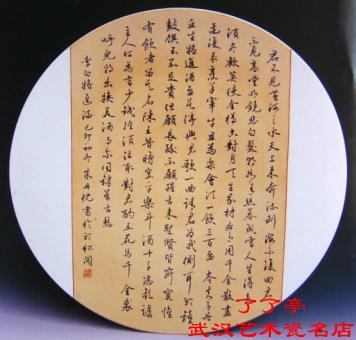 君不見黃河之水天上來奔流到海不復回君
不見高堂明鏡悲白髮朝如青絲暮成雪人生得意
須盡歡莫使金樽空對月天生我材必有用千金散盡
還復來烹羊宰牛且為樂會須一飲三百杯岑夫子丹
丘生將進酒君莫停與君歌一曲請君為我側耳聽鐘
鼓饌玉不足貴但願長醉不願醒古來聖賢皆寂寞惟
有飲者留其名陳王昔時宴平樂斗酒十千恣歡謔
主人何為言少錢徑須沽取對君酌五花馬千金裘
呼兒將出換美酒與爾同銷萬古愁
李白將進酒 己卯初冬 朱丹忱書於 閣
了了亭
武汉艺术瓷名店